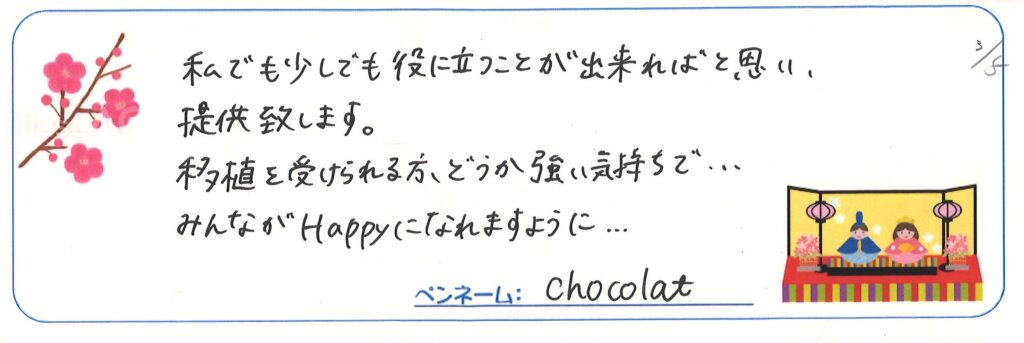 3/5
私でも少しでも役に立つことが出来ればと思い、
提供致します。
移植を受けられる方、どうか強い気持ちで…
みんながHappyになれますように…
ペンネーム: chocolat